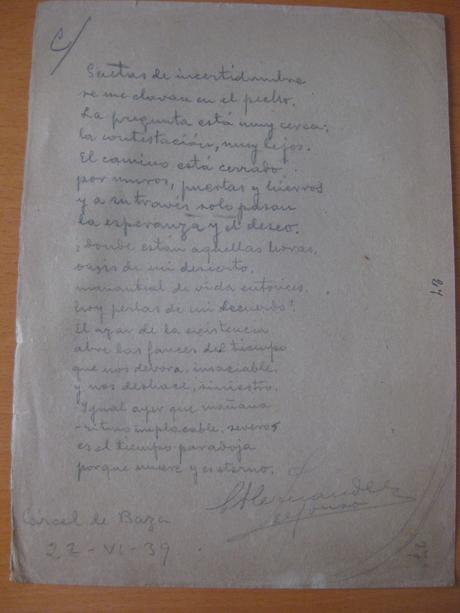 C/
Saetas de incertidumbre
se me clavan en el pecho.
La pregunta está muy cerca;
la contestación, muy lejos.
El camino está cerrado
por muros, puertas y hierros
y a su través solo pasan
la esperanza y el deseo.
¿donde están aquellas horas,
oasis de mi desierto,
manantial de vida entonces,
hoy perlas de mi recuerdo?
El azar de la existencia
abre las fauces del tiempo
que nos devora, insaciable,
y nos deshace, siniestro.
Igual ayer que mañana
-ritmo implacable, severo-
es el tiempo paradoja
porque muere y es eterno.
Cárcel de Baza
22-VI-39